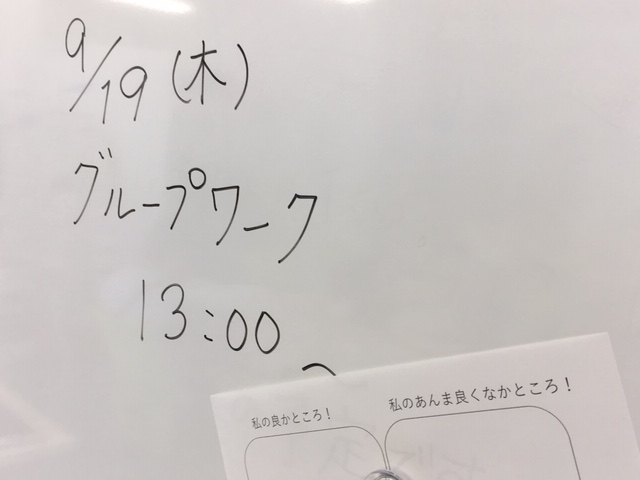 9/19(木)
グループワーク
13:00
私の良かところ!
私のあんま良くなかところ!